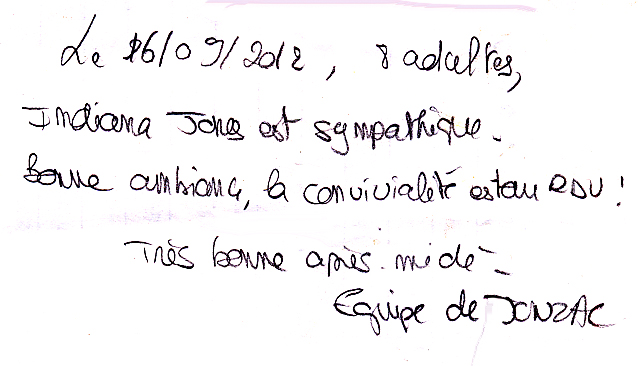 Le 16/09/2012, 8 adultes,
Indiana Jones est sympathique.
Bonne ambiance, la convivialité est au RDV !
Très bonne après-midi.
Equipe de JONZAC